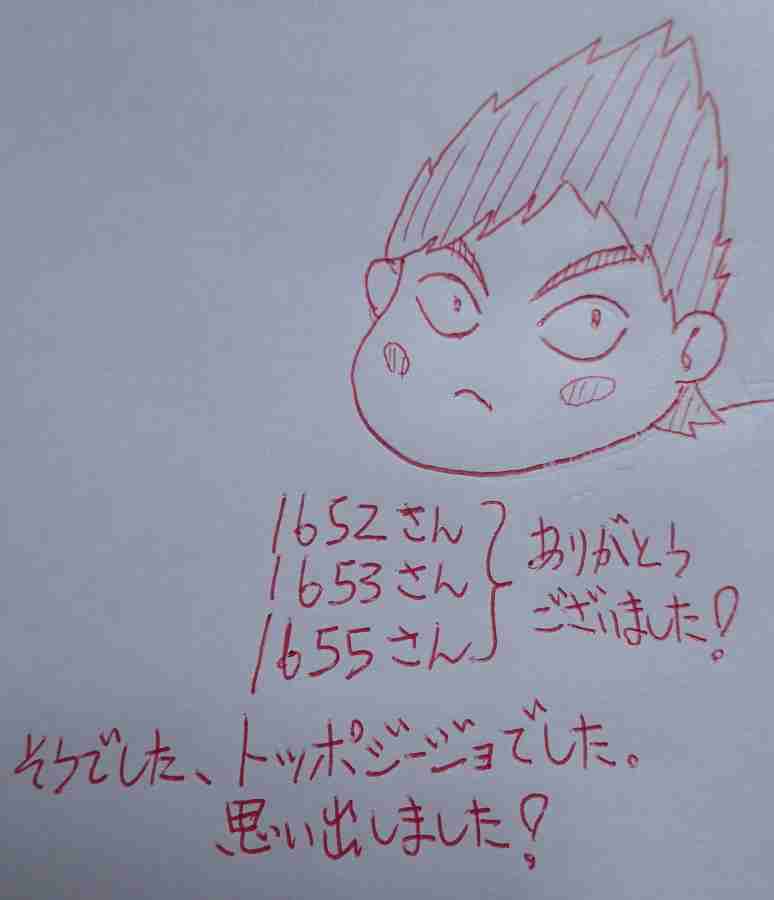 1652さん
1653さん
1655さん
ありがとう
ございました!
そうでした、トッポジージョでした。
思い出しました!